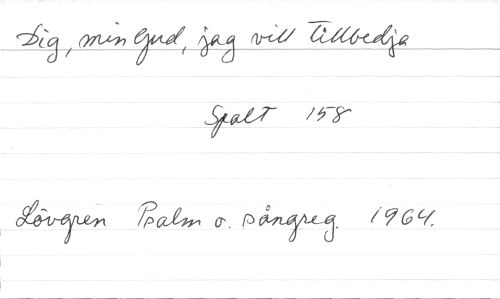 Dig, min Gud, jag vill tillbedja
Spalt 158
Lövgren Psalm o. sångreg. 1964.